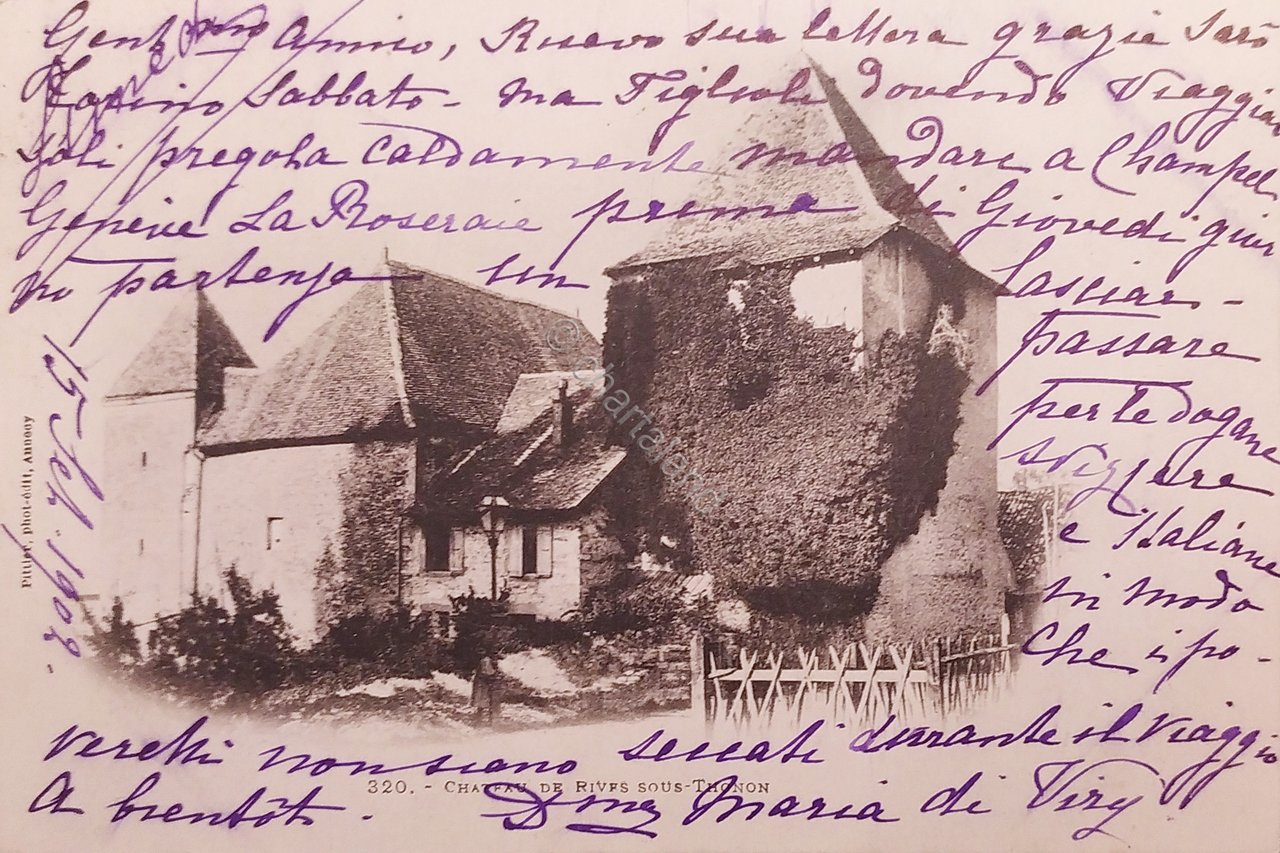 Gent^mo Amico, Ricevo sua lettera grazie Sarò
Torino Sabbato - ma Figlioli dovendo Viaggiar
Soli pregola caldamente mandare a Champel
Genève La Roseraie prima di Giovedi gior
no partenza un lasciar -
passare
per le dogane
svizzere
e Italiane
in modo
che i po -
veretti non siano seccati durante il viaggio
A bientôt. Maria di Viry
15 Sett: 1902 -
320. - CHATEAU DE RIVES SOUS-THONON
Pittier, phot-édit, Annecy
© chartaland